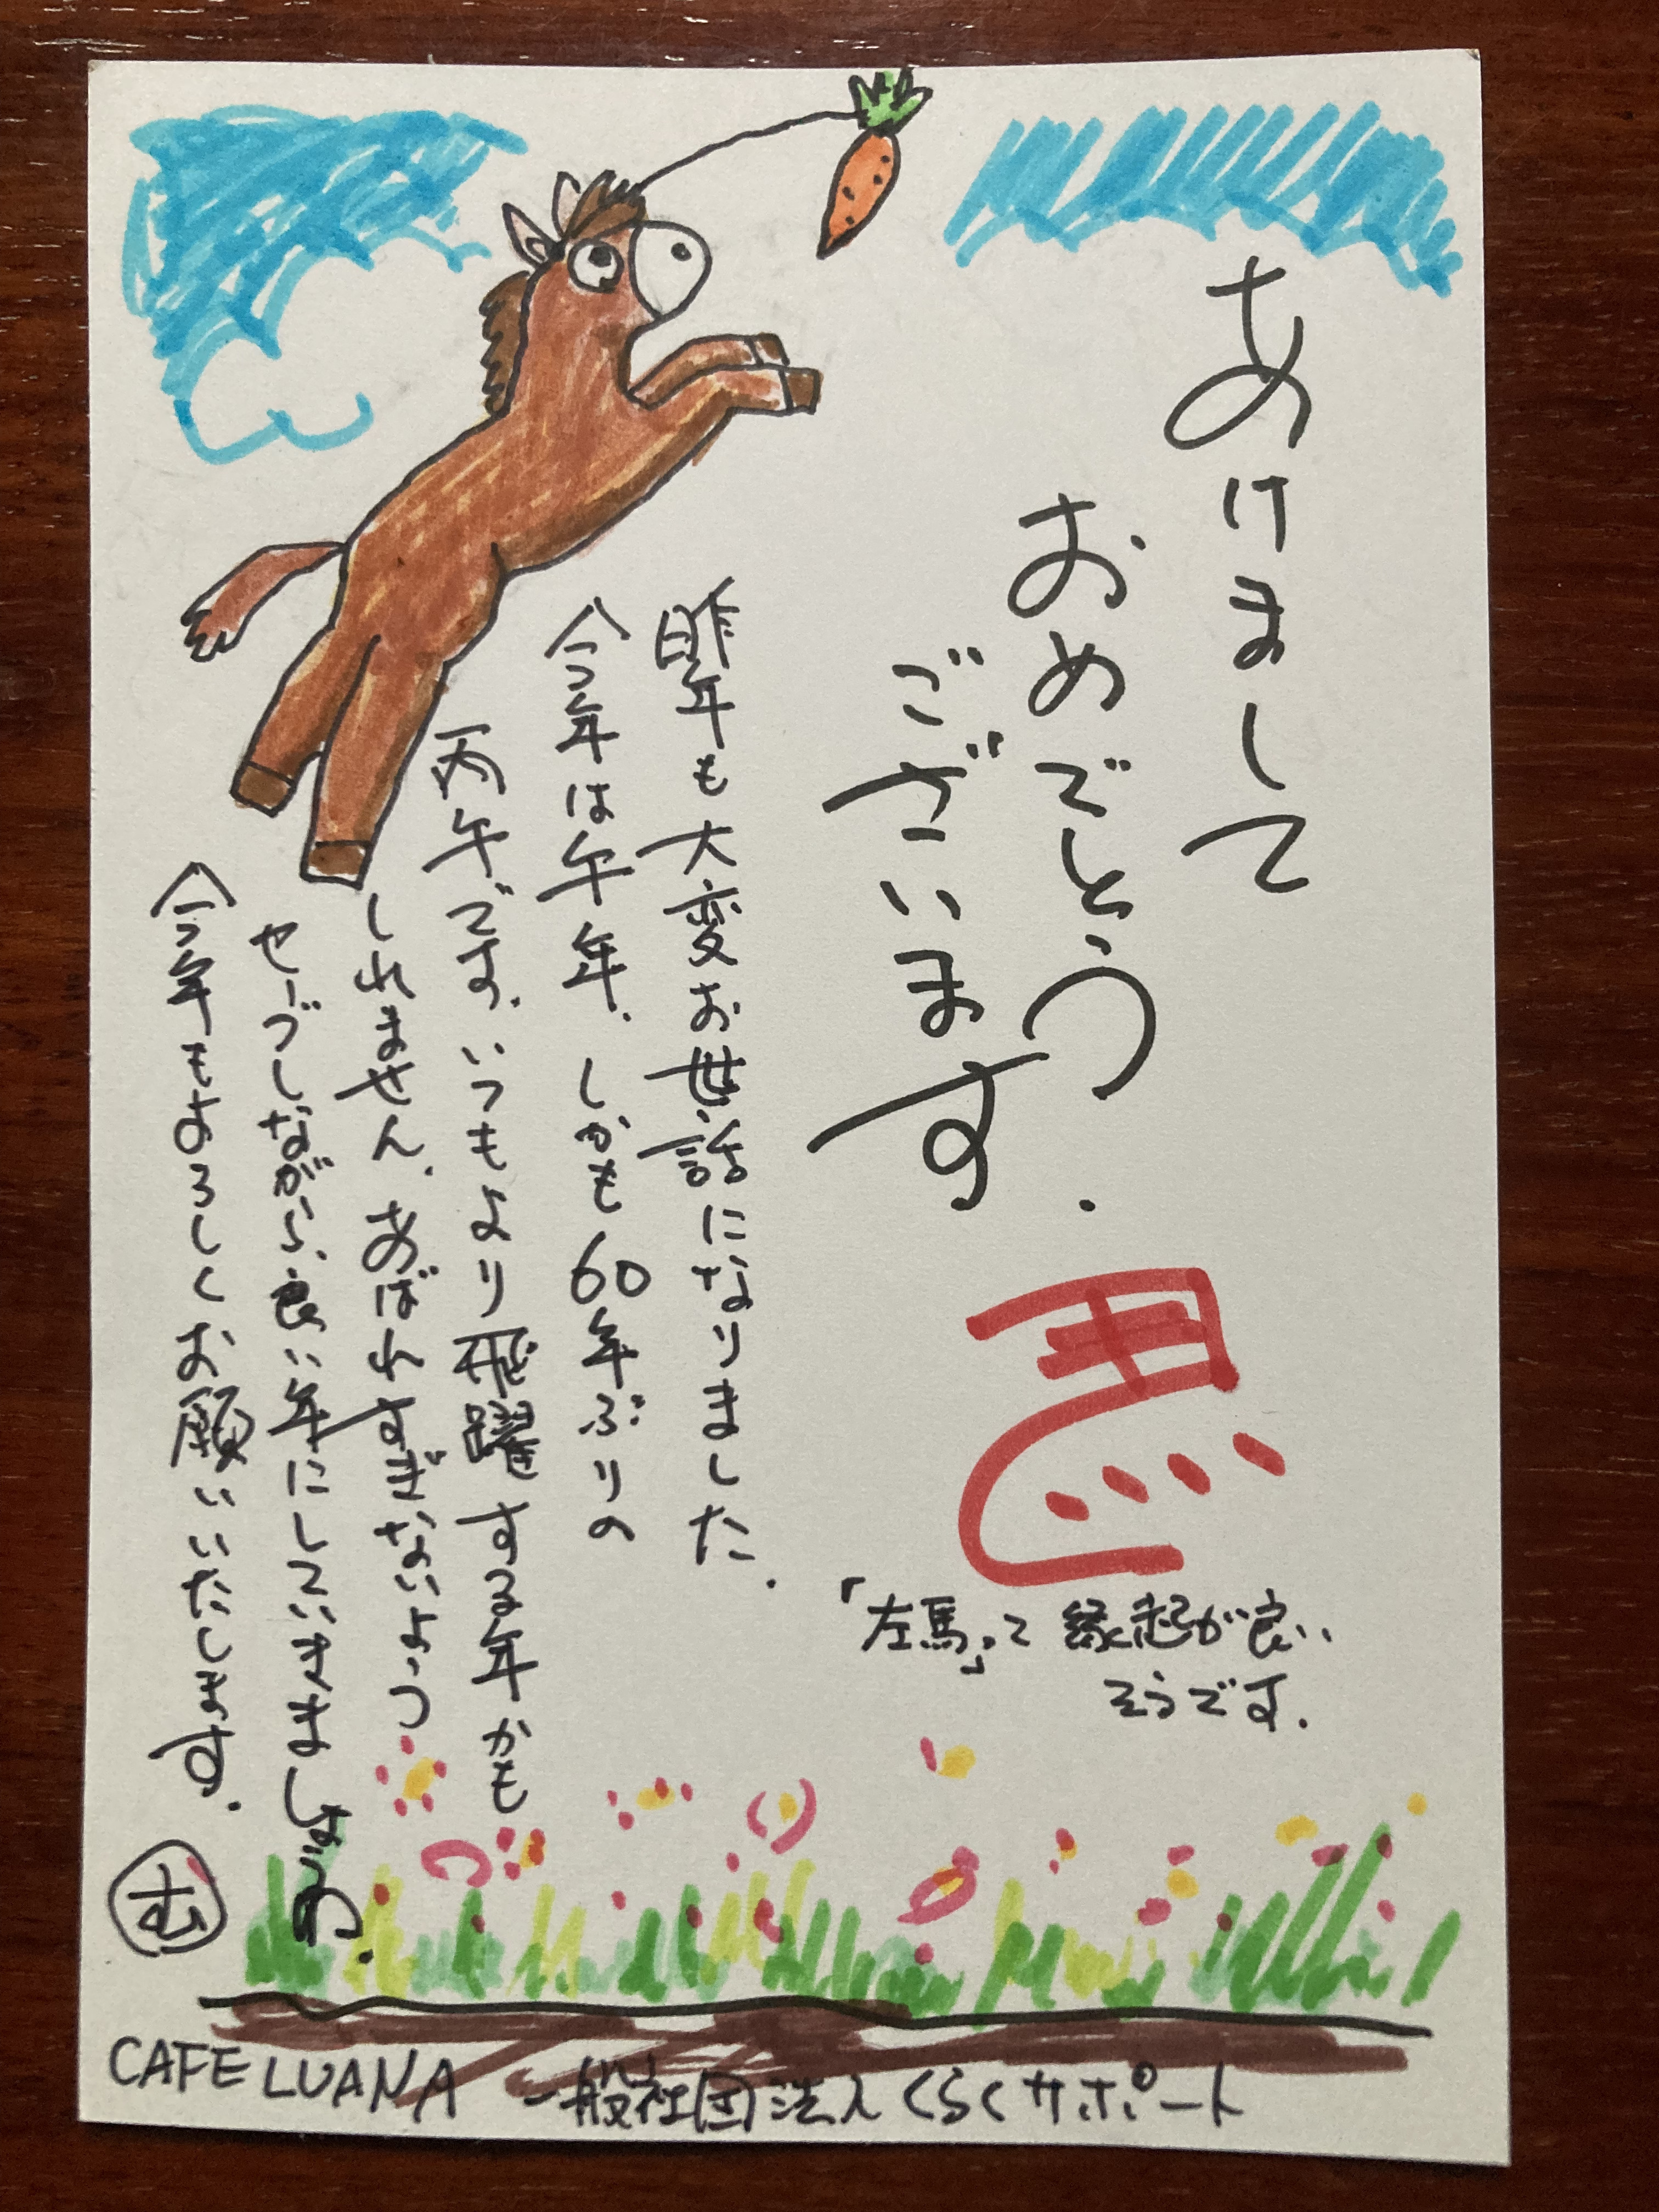 あけまして
おめでとう
ございます.
「左馬」って 縁起が良い
そうです.
昨年も大変お世話になりました.
今年は午年. しかも60年ぶりの
丙午です. いつもより飛躍する年かも
しれません. あばれすぎないよう
セーブしながら、良い年にしていきましょう.
今年もよろしくお願いいたします.
CAFE LUANA 一般社団法人くらくサポート